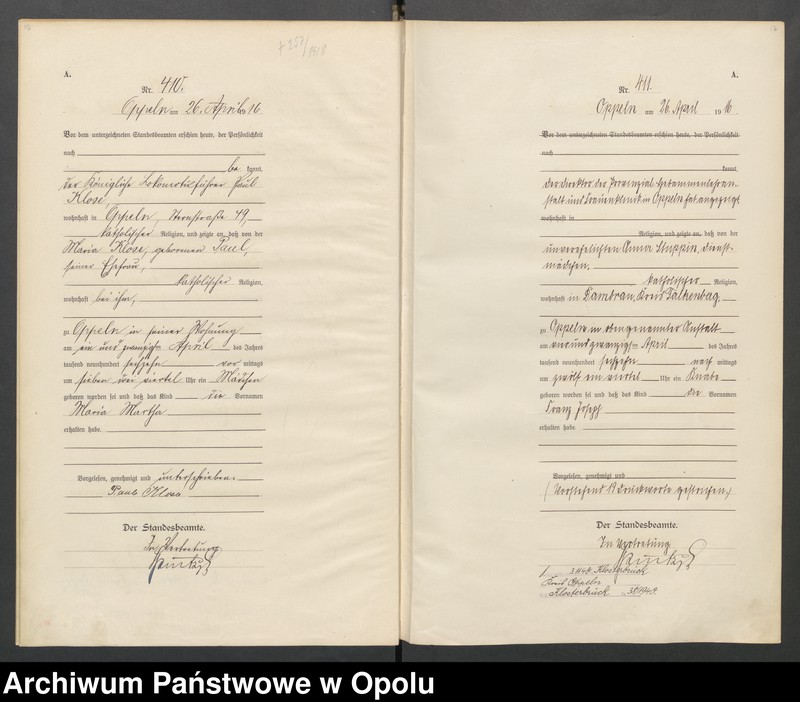 A.
Nr. 410.
Oppeln am 26. April 1916
Vor dem unterzeichneten Standesbeamten erschien heute, der Persönlichkeit
nach
be kannt,
der Königliche Lokomotivführer Paul
Klose,
wohnhaft in Oppeln, Sternstraße 49,
katholischer Religion, und zeigte an, daß von der
Maria Klose, geborenen Paul,
seiner Ehefrau,
katholischer Religion,
wohnhaft bei ihm,
zu Oppeln in seiner Wohnung
am ein und zwanzigsten April des Jahres
tausend neunhundert sechzehn vor mittags
um sieben drei viertel Uhr ein Mädchen
geboren worden sei und daß das Kind die Vornamen
Maria Martha
erhalten habe.
Vorgelesen, genehmigt und unterschrieben.
Paul Klose
Der Standesbeamte.
In Vertretung
A.
Nr. 411.
Oppeln am 26. April 1916
Vor dem unterzeichneten Standesbeamten erschien heute, der Persönlichkeit
nach
kannt,
Der Direktor der Provinzial-Hebammenlehran-
stalt und Frauenklinik in Oppeln hat angezeigt
wohnhaft in
Religion, und zeigte an, daß von der
unverehelichten Anna Stuppin, Dienst-
mädchen,
katholischer Religion,
wohnhaft in Dambrau, Kreis Falkenberg
zu Oppeln in obengenannter Anstalt
am vierundzwanzigsten April des Jahres
tausend neunhundert sechzehn nach mittags
um zwölf ein viertel Uhr ein Knabe
geboren worden sei und daß das Kind die Vornamen
Franz Joseph
erhalten habe.
Vorgelesen, genehmigt und
(Vorstehend 17 Druckworte gestrichen)
Der Standesbeamte.
In Vertretung
Klosterbrück
Kreis Oppeln
Klosterbrück
Archiwum Państwowe w Opolu